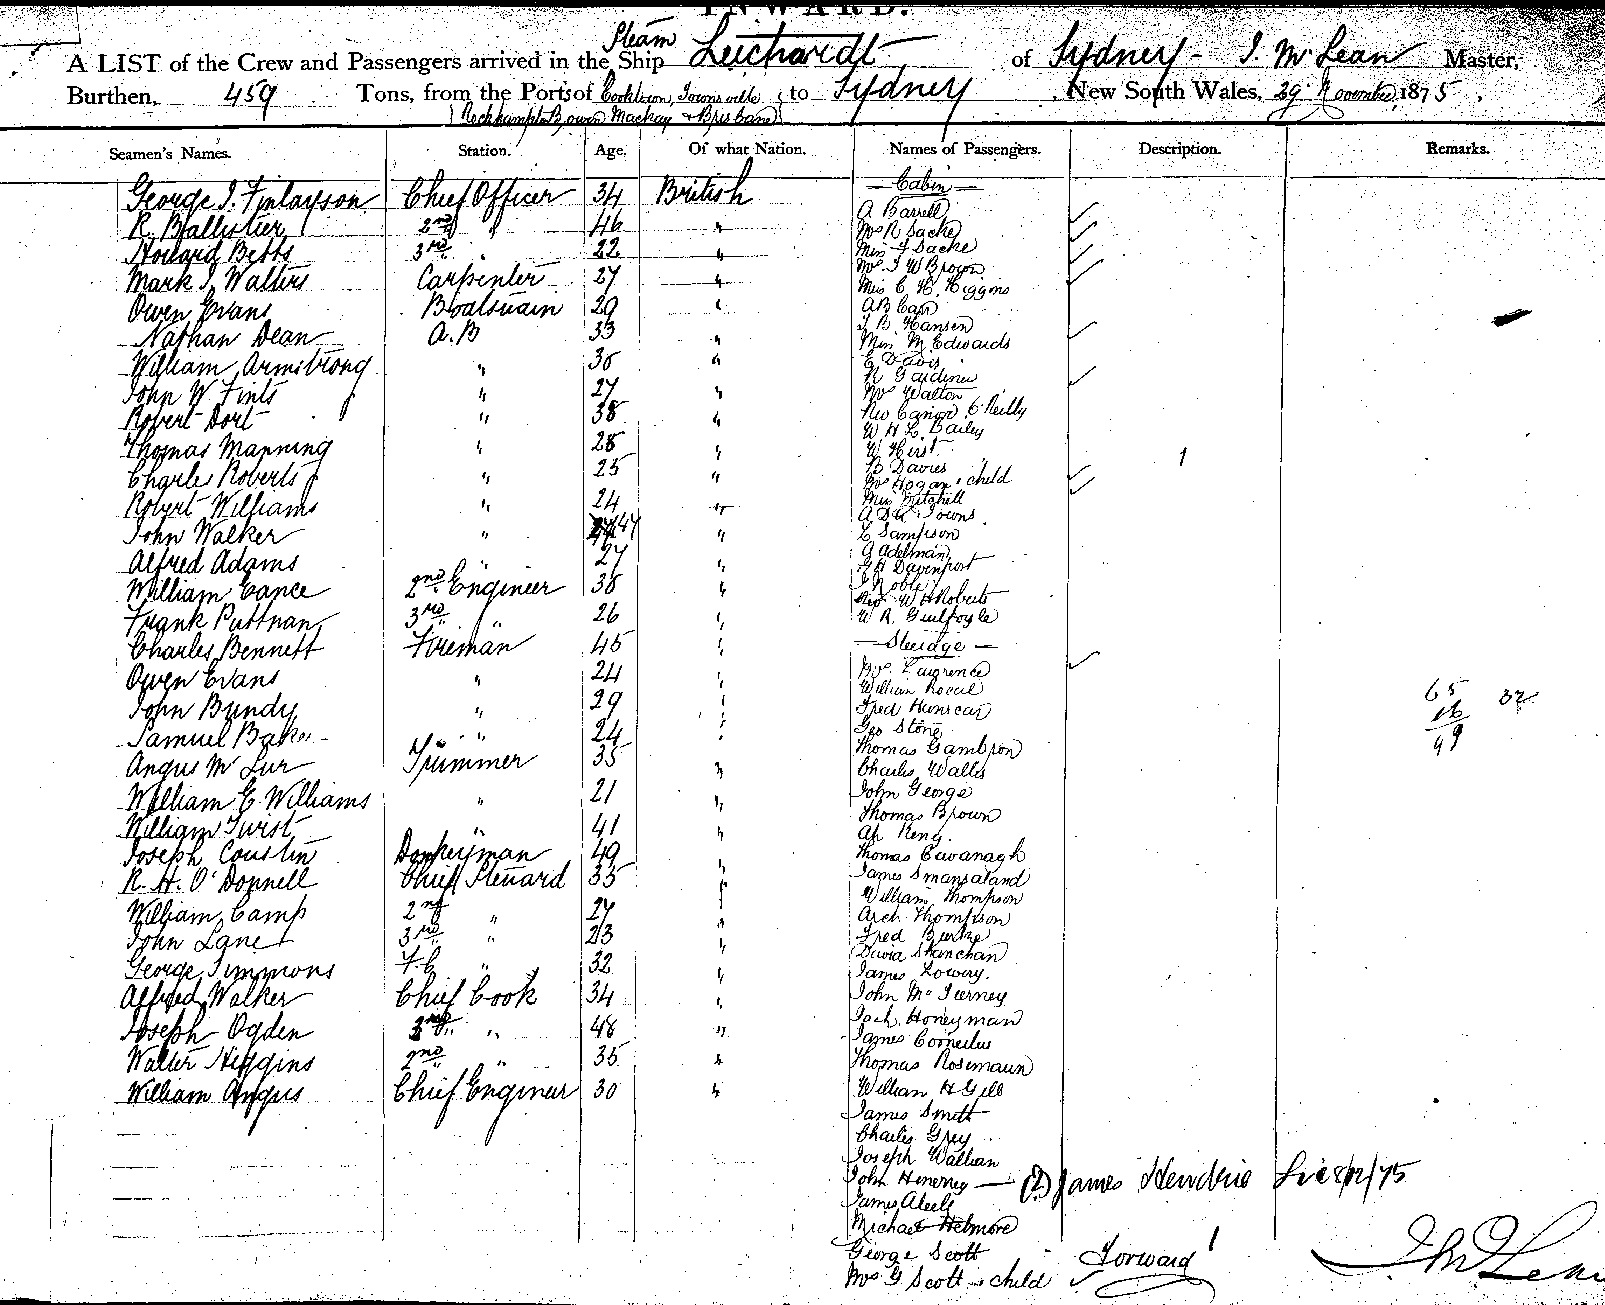 INWARD.
A LIST of the Crew and Passengers arrived in the Steam Ship Leichardt of Sydney - J. McLean Master,
Burthen, 459 Tons, from the Ports of Cooktown, Townsville to Sydney, New South Wales, 29 November 1875.
Rockhampton Bowen Mackay & Brisbane
Seamen's Names. Station. Age. Of what Nation. Names of Passengers. Description. Remarks.
George J. Finlayson Chief Officer 34 British
R. Ballistier 2nd " 46 "
Howard Betts 3rd 22 "
Mark J. Walters Carpenter 27 "
Owen Evans Boatswain 29 "
Nathan Dean A.B 33 "
William Armstrong " 36 "
John W Fints " 27 "
Robert Dort " 38 "
Thomas Manning " 28 "
Charles Roberts " 25 "
Robert Williams " 24 "
John Walker " 47 "
Alfred Adams " 27 "
William Cance 2nd Engineer 38 "
Frank Puttnam 3rd " 26 "
Charles Bennett Fireman 45 "
Owen Evans " 24 "
John Bundy " 29 "
Samuel Baker " 24 "
Angus Mc Lur Trimmer 35 "
William E Williams " 21 "
William Twist " 41 "
Joseph Coustin Donkeyman 49 "
R. H. O'Donnell Chief Steward 35 "
William Camp 2nd " 27 "
John Lane 3rd " 23 "
George Simmons F.C " 32 "
Alfred Walker Chief Cook 34 "
Joseph Ogden 3rd " 48 "
Walter Higgins 2nd " 35 "
William Angus Chief Engineer 30 "
Cabin
A Barrell
Mrs R Sache
Miss F Sache
Mrs J W Brown
Miss C H. Higgins
A B Carr
J B. Hansen
Miss M Edwards
E Davis
R Gardiner
Mrs Walton
Rev Canon O'Reilly
W H L Bailey
W Hirst
B Davies
Mrs Hogan & child
Miss Mitchell
A Towns
E Sampson
G Adelman
G H Davenport
J Noble
Rev W H Roberts
W R. Guilfoyle
Steerage
Mrs. Lawrence
William
Fred
Geo Stone
Thomas Gambson
Charles Wallis
John George
Thomas Brown
Ah Keng.
Thomas Cavanagh
James
William Thompson
Arch Thompson
Fred Burke
David Shanahan
James Lowry.
John McTierney
Jach. Honeyman
James Cornelus
Thomas Rosemaun
William H Gill
James Smith
Charles Grey
Joseph Wallian
John — (2) James Hendrie 8/12/75
James
Michael Helmore
George Scott
Mrs G Scott & child
Forward
65 32
99
J McLean